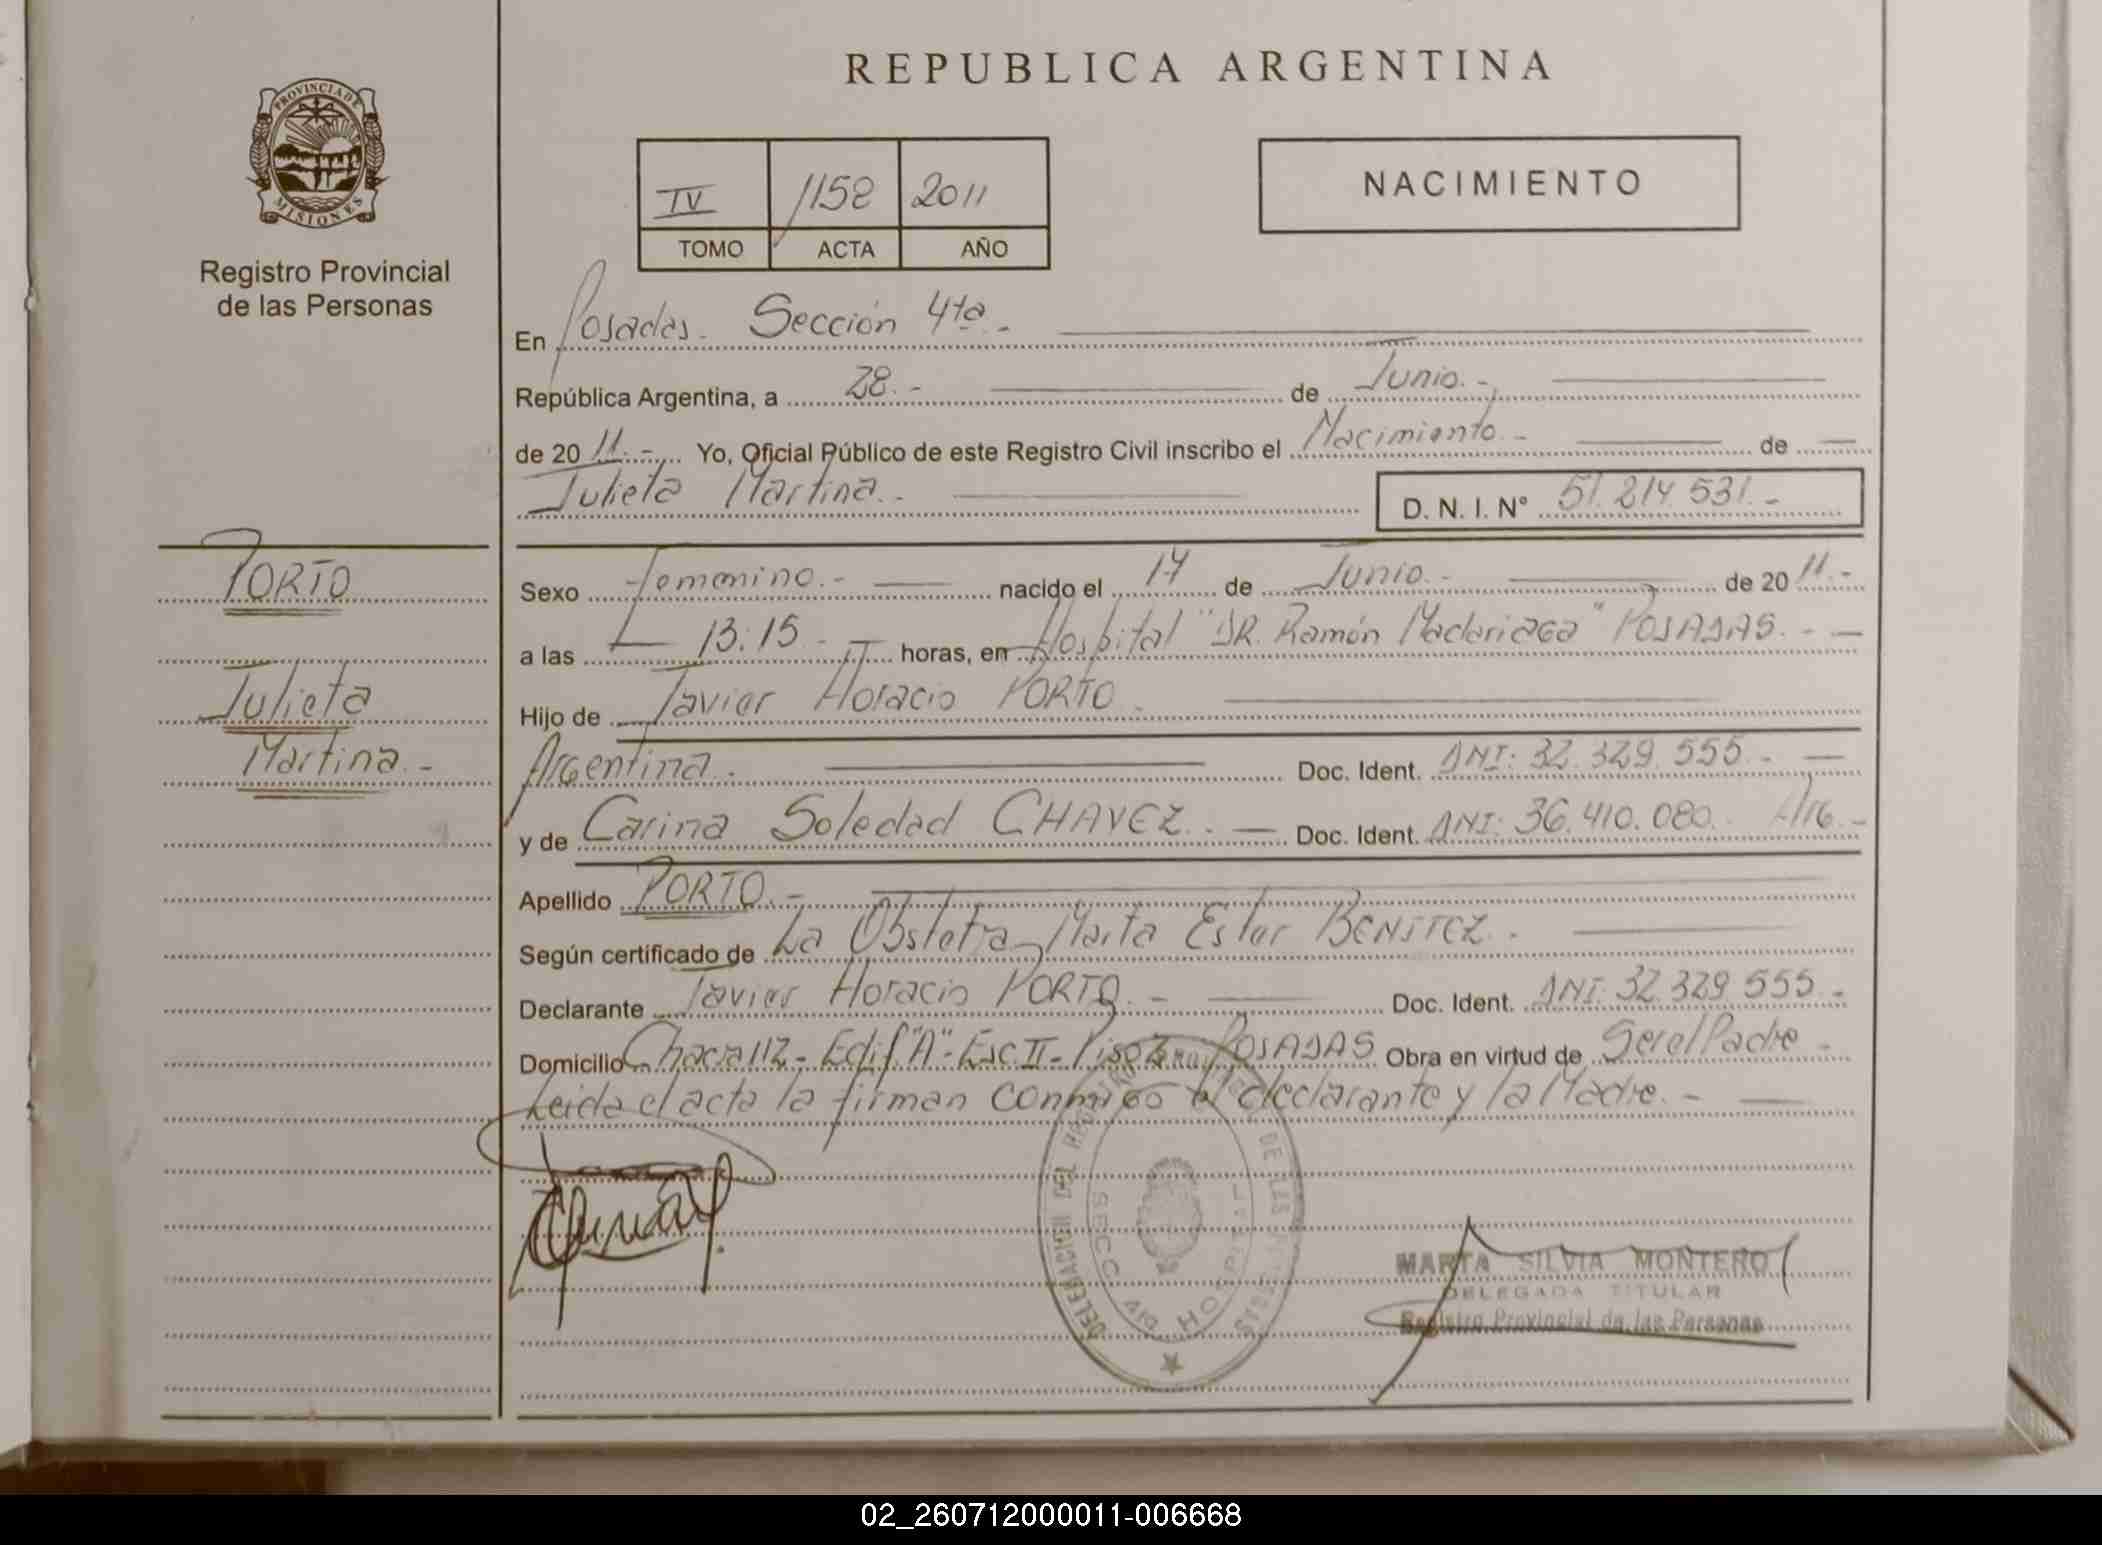 REPUBLICA ARGENTINA
PROVINCIA DE
MISIONES
Registro Provincial
de las Personas
IV 1158 2011
TOMO ACTA AÑO
NACIMIENTO
En Posadas. Sección 4ta.-
República Argentina, a 28.- de Junio.-
de 2011.- Yo, Oficial Público de este Registro Civil inscribo el Nacimiento.- de
Julieta Martina.- D. N. I. N° 51.214.531.-
PORTO
Julieta
Martina.-
Sexo Femenino.- nacido el 14 de Junio.- de 2011.-
a las 13:15.- horas, en Hospital "DR. Ramón Madariaga" POSADAS.-
Hijo de Javier Horacio PORTO.
Argentina. Doc. Ident. DNI: 32.329.555.-
y de Carina Soledad CHAVEZ.- Doc. Ident. DNI: 36.410.080.
Apellido PORTO.-
Según certificado de La Obstetra Marta Ester BENITEZ.
Declarante Javier Horacio PORTO.- Doc. Ident. DNI. 32.329.555.-
Domicilio Chacra 112- Edif. "A"- Esc. II- Piso 2 POSADAS. Obra en virtud de Ser el Padre.-
Leida el acta la firman conmigo el declarante y la Madre.-
DELEGACION DEL REGISTRO PROVINCIAL DE LAS PERSONAS
SECC 4ta HOSPITAL
MARTA SILVIA MONTERO
DELEGADA TITULAR
Registro Provincial de las Personas
02_260712000011-006668